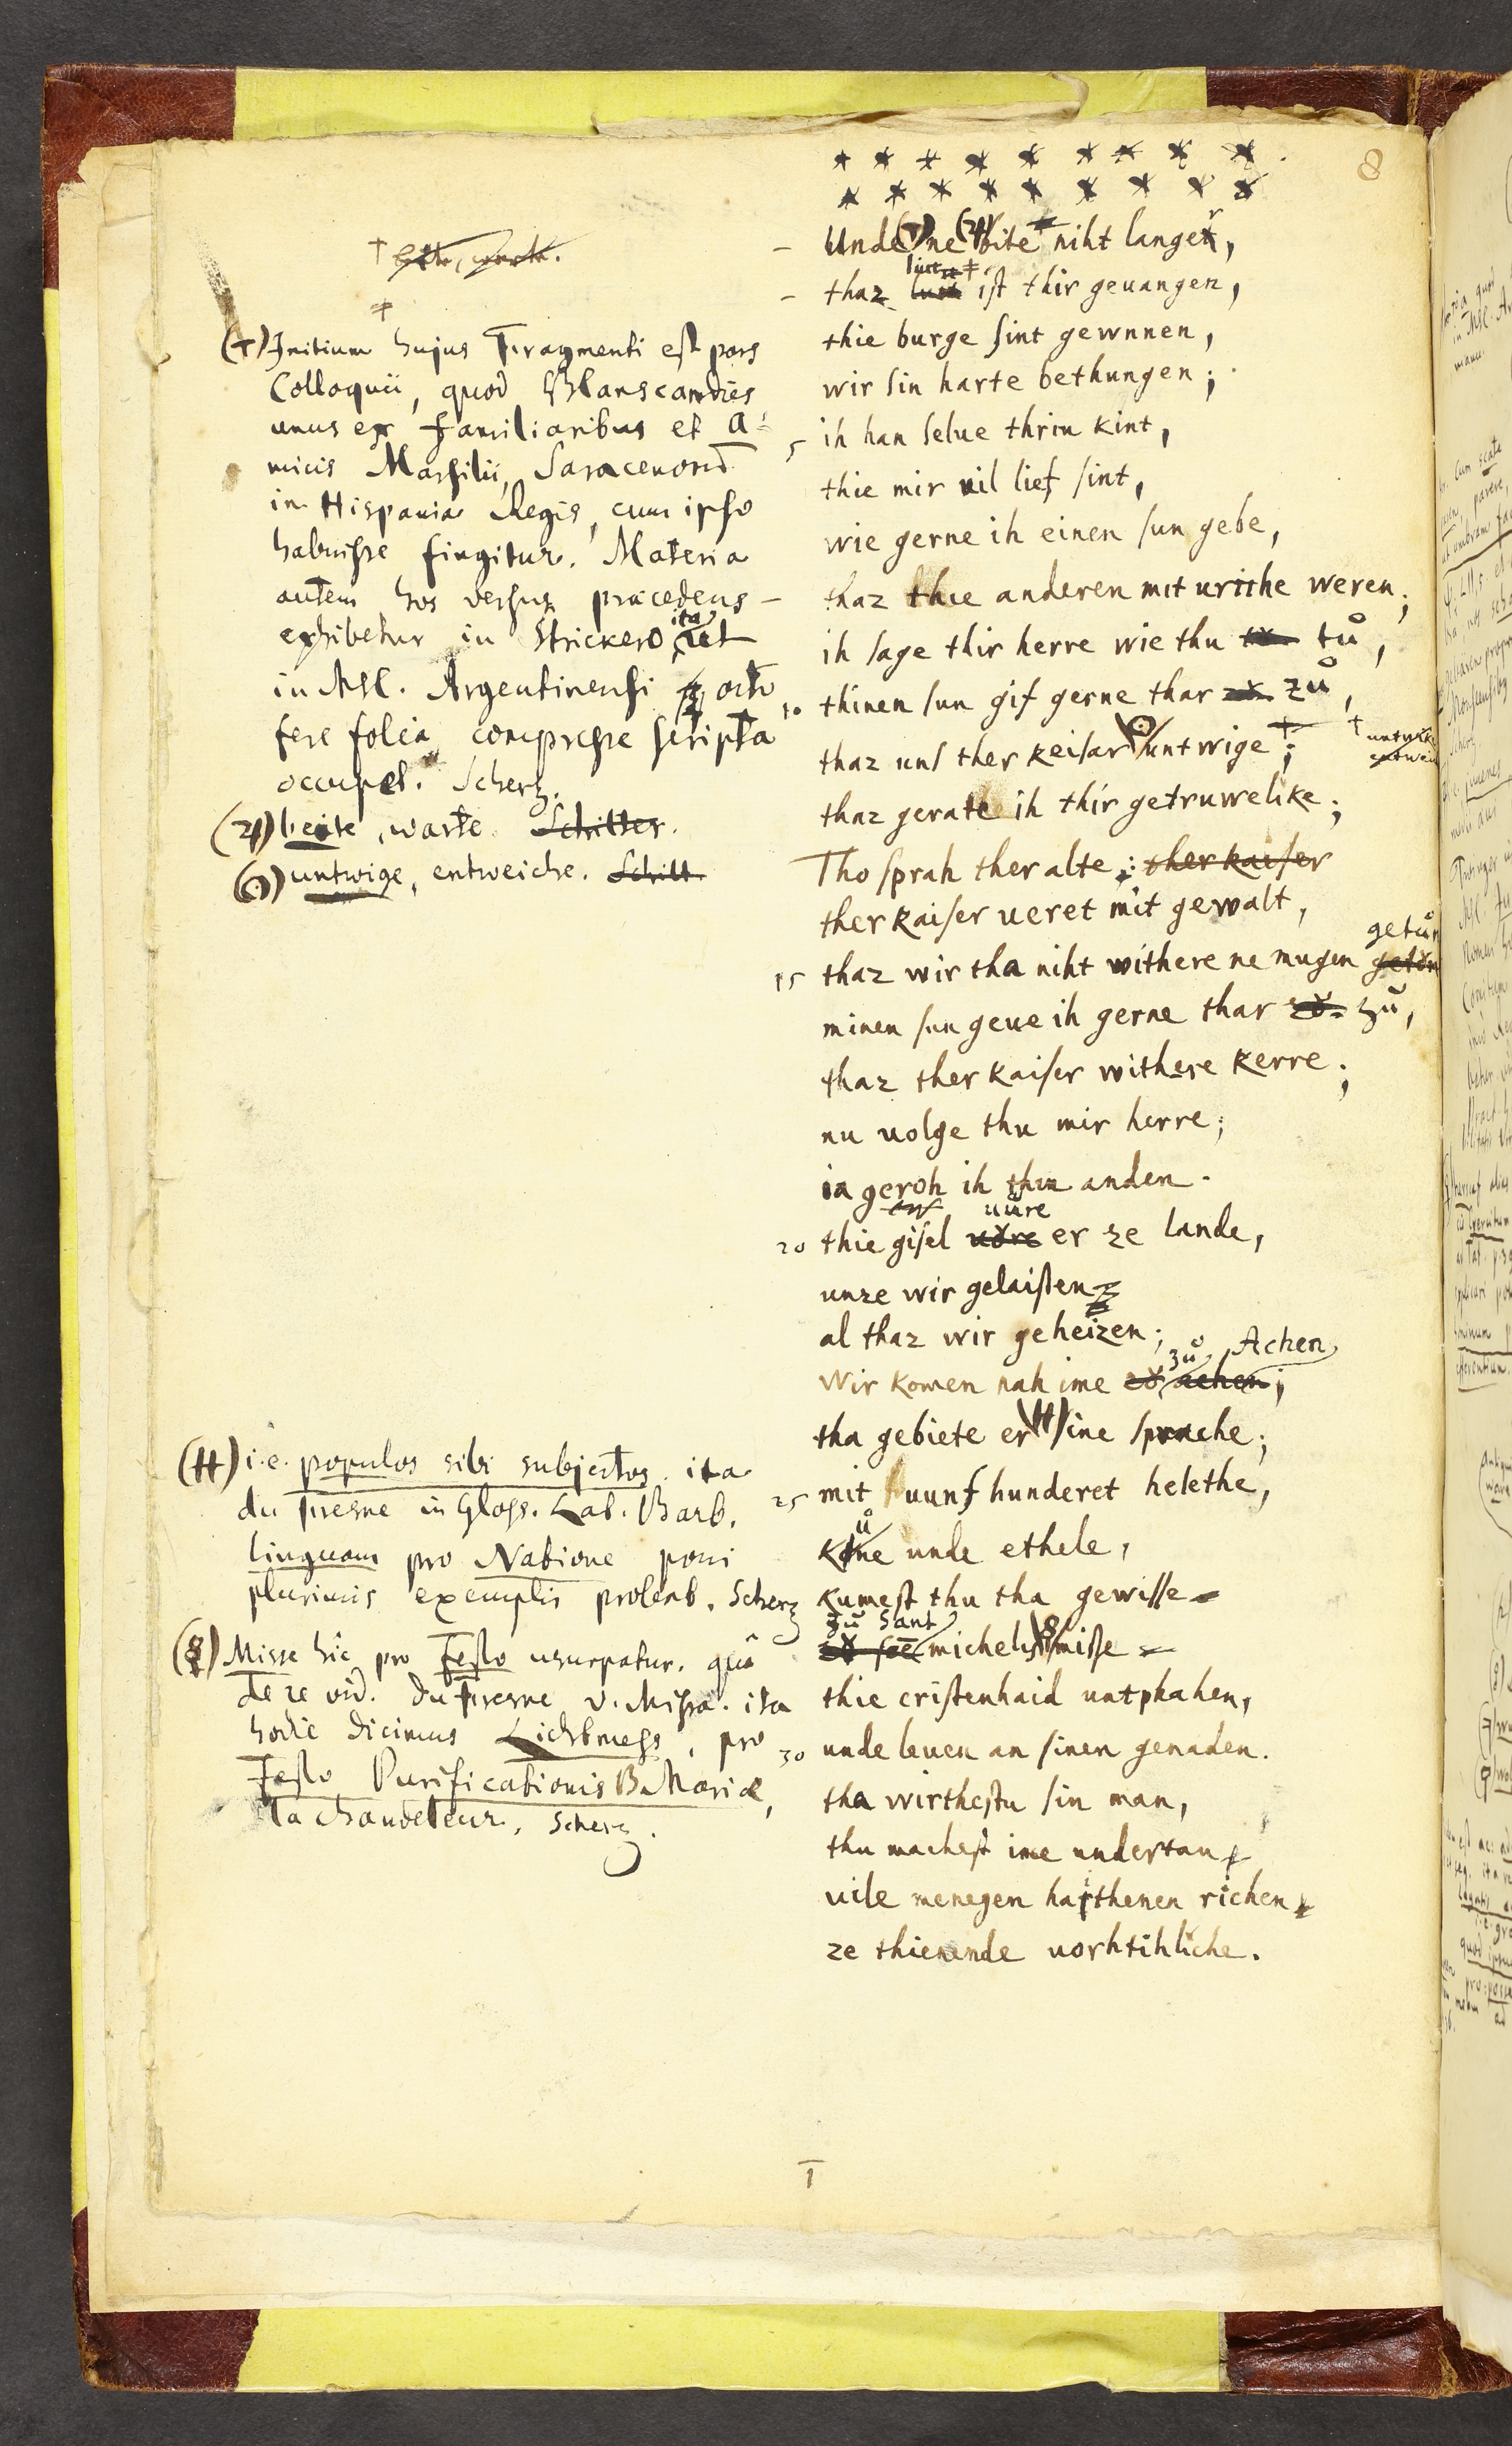 8
Unde (†) ne (♃) bite niht langer,
thaz lüt ist thir geuangen,
thie burge sint gewnnen,
wir sin harte bethungen;
5 ih han selue thriu kint,
thie mir uil lief sint,
wie gerne ih einen sun gebe,
thaz thie anderen mit urithe weren;
ih sage thir herre wie thu tů,
10 thinen sun gif gerne thar zů,
thaz uns ther keisar (☉) untwige †;
thaz gerate ih thir getruwelike;
Tho sprah ther alte: ther kaiser
ther kaiser ueret mit gewalt,
15 thaz wir tha niht withere ne mugen getůn
minen sun geue ih gerne thar zů,
thaz ther kaiser withere kerre;
nu uolge thu mir herre;
ia geroh ih thin anden.
20 thie gisel uůre er ze lande,
unze wir gelaisten
al thaz wir geheizen;
Wir komen nah ime zů Achen;
tha gebiete er (††) sine sprache;
25 mit uunf hunderet helethe,
kůne unde ethele,
kumest thu tha gewisse
zů Sant michelis (§) misse
thie cristenhaid untphahen,
30 unde leuen an sinen genaden.
tha wirthestu sin man,
thu machest ime undertan
uile menegen haithenen richen
ze thienende uorhtihliche.
(†) Initium hujus Fragmenti est pars
Colloquii, quod Blanscandies
unus ex familiaribus et a-
micis Marsilii, Saracenorum
in Hispania Regis, cum ipso
habuisse fingitur. Materia
autem hos versus præcedens
exhibetur in Strickero ita, ut
in Msc. Argentinensi octo
fere folia compresse scripta
occupet. Scherz.
(♃) beite, warte. Schilter.
(☉) untwige, entweiche. Schilt.
(††) i.e. populos sibi subjectos. ita
du Fresne in Gloss. Lat. Barb.
linguam pro Natione poni
plurimis exemplis probat. Scherz
(§) Misse hic pro Festo usurpatur. quâ
de re vid. du Fresne v. Missa. ita
hodie dicimus Lichtmess, pro
Festo Purificationis B. Mariæ,
la chandeleur. Scherz.
1